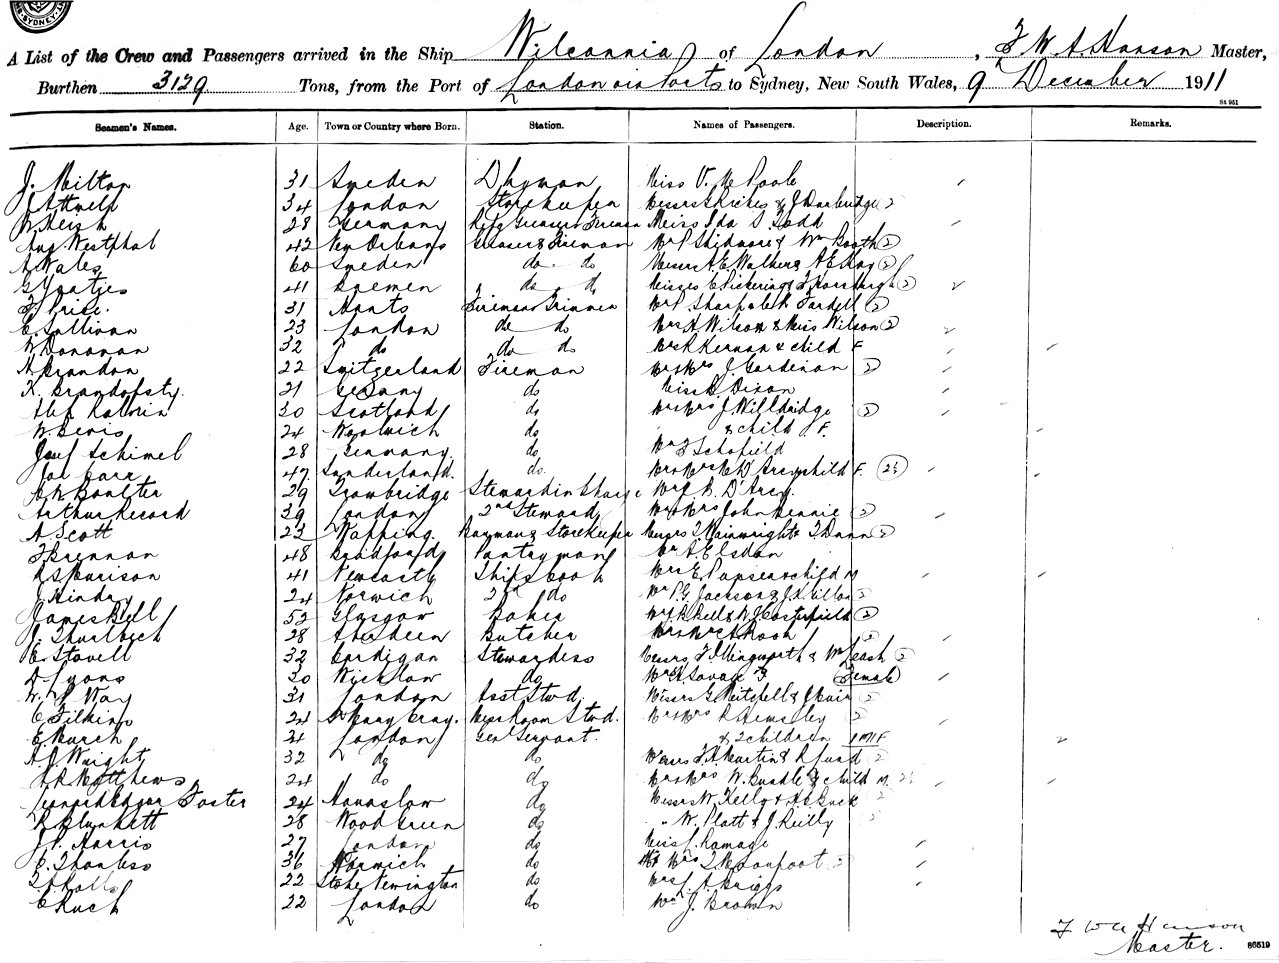 SYDNEY
A List of the Crew and Passengers arrived in the Ship Wilcannia of London, F W A Hanson Master,
Burthen 3129 Tons, from the Port of London via Ports to Sydney, New South Wales, 9 December 1911
St 951
Seamen's Names. Age. Town or Country where Born. Station. Names of Passengers. Description. Remarks.
J. Milton 31 Sweden Dkyman Miss V. M Poole
34 London Storekeeper Messrs & J Darbridge 2
28 Germany Refg Greaser Fireman Miss Ida S. Todd
Aug Westphal 42 New Orleans Greaser & Fireman Mr P Skidmore & Wm Booth 2
Wales 60 Sweden do do Messrs A. E. Walker & A E 2
41 Bremen do do Misses C Pickering & 2
F Price. 31 Hants Fireman Trimmer Mr P Sharpole & Fardell 2
C. Sullivan 23 London do do Mrs A Wilson & Miss Wilson 2
W Donovan 32 do do do Mrs R Kernan & child F
A Brandon 22 Switzerland Fireman Mr & Mrs J. Gardinan 2
K. 21 Germany do Miss Dixon
30 Scotland do Mr & Mrs J Willdridge 2
W. 24 Woolwich do & child F.
Josef Schimel 28 Germany. do Mr Schofield
Jos Carr 47. Sunderland. do. Mr & Mrs D'Arcy & child F. 2½
A W Boulter 29 Trowbridge Steward in Charge Mr R. D'Arcy.
Arthur Record 39 London 2nd Steward Mr & Mrs John Rennie 2
A Scott 23 Wapping. Barman & Storekeeper Messrs T. Wainwright & T Dunn 2
T Brennan 48 Bradford Pantryman Mr A. Elsdon
R S Murison 41 Newcastle Ships Cook Mrs E. & child M
J Hindry 24 Norwich 2nd do Mr P. G. Jackson & J. 2
James Bell 52 Glasgow Baker 2
J. 28 Aberdeen Butcher Mr & Mrs A Rook 2
E. Stovell 32 Cardigan Stewardess Messrs F. Illingworth & W Leash 2
D Lyons 30 Wicklow do Mr A. Savage Female
W. R. Way 31 London Asst Stwd. Messrs G. Mitchell & J. Muir 2
C Filkins 24 St Mary Cray. Messroom Stwd. Mr & Mrs R. Hemsley 2
E. Burch 21 London Genl Servant. & 2 children 1M 1F
A. J. Wright 32 do do Messrs F. A. Martin & R Lund 2
A R Matthews 24 do do Mr & Mrs W. & child M. 2½
Leonard Edgar Foster 24 Hounslow do Messrs W. Kelly & H G Buck 2
R Plunkett 28 Wood Green do " W. Platt & J. Reilly 2
J. P. Harris 27 London do Miss J. Ramage
C. 36 Norwich do Mr & Mrs J. 2
22 Stoke Newington do Mrs J. A. Briggs
C Ruck 22 London do Mr J. Brown
F W A Hanson
Master.
86519